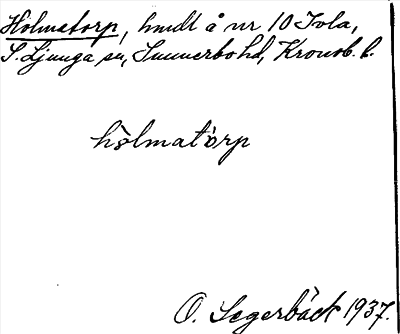 Holmatorp, hmdt å nr 10 Tola,
S. Ljunga sn, Sunnerbo hd, Kronob. l.
hòlmatòrp
O. Segerbäck 1937.